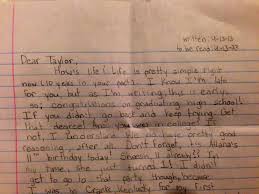 written: 4-13-13
to be read: 4-13-23
Dear Taylor,
How's life? Life is pretty simple right
now (10 years in your past). I know I'm late
for you, but as I'm writing this is early,
so, congratulations on graduating high school!
If you didn't, go back and keep trying! Get
that degree! Are you in college? If
not, I understand. You have pretty good
reasoning, after all. Don't forget, its Allana's
11th birthday today! She's 11 already? In
my time, she just turned 1! I didn't
get to go to her party though, because
I was in Kentucky for my first